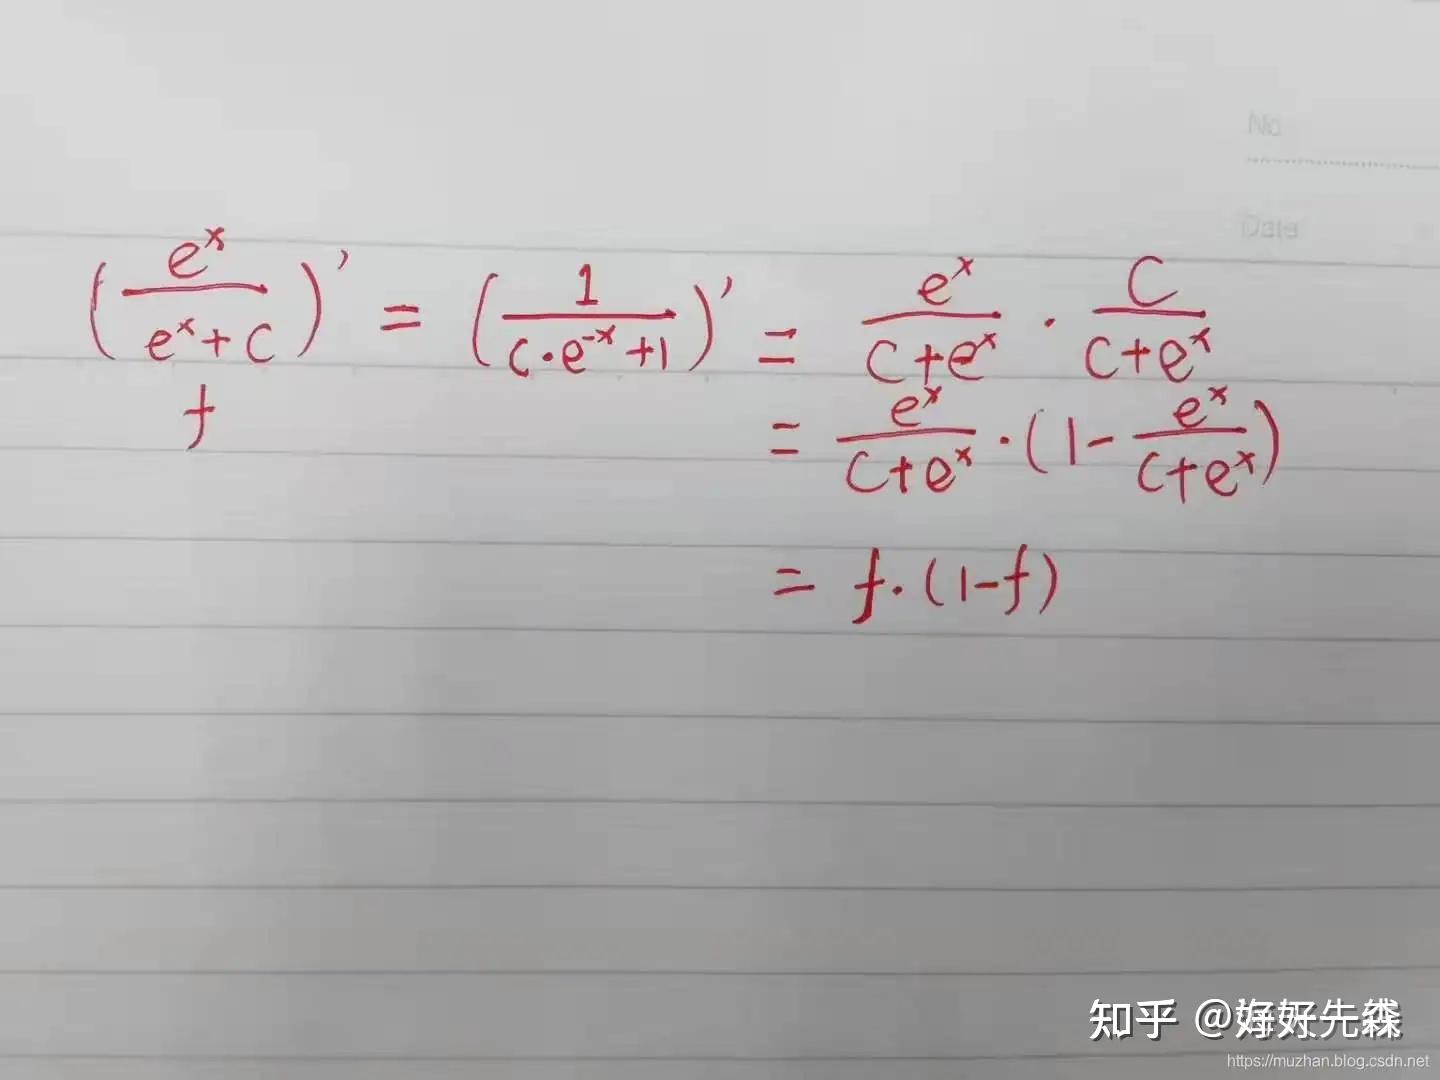 No
Date
(e^x / (e^x + C))' = (1 / (C·e^-x + 1))' = e^x / (C + e^x) · C / (C + e^x)
f
= e^x / (C + e^x) · (1 - e^x / (C + e^x))
= f·(1-f)
知乎 @海好先森
https://muzhan.blog.csdn.net